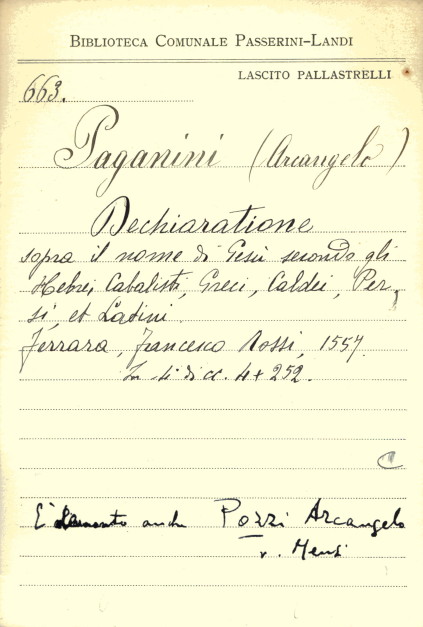 BIBLIOTECA COMUNALE PASSERINI-LANDI
LASCITO PALLASTRELLI
663.
Paganini (Arcangelo)
Dechiaratione
sopra il nome di Gesù secondo gli
Hebrei Cabalisti, Greci, Caldei, Per-
si, et Latini.
Ferrara, Francesco Rossi, 1557.
In 4° di cc. 4 + 252.
C
E' anche Pozzi Arcangelo
v. Mensi